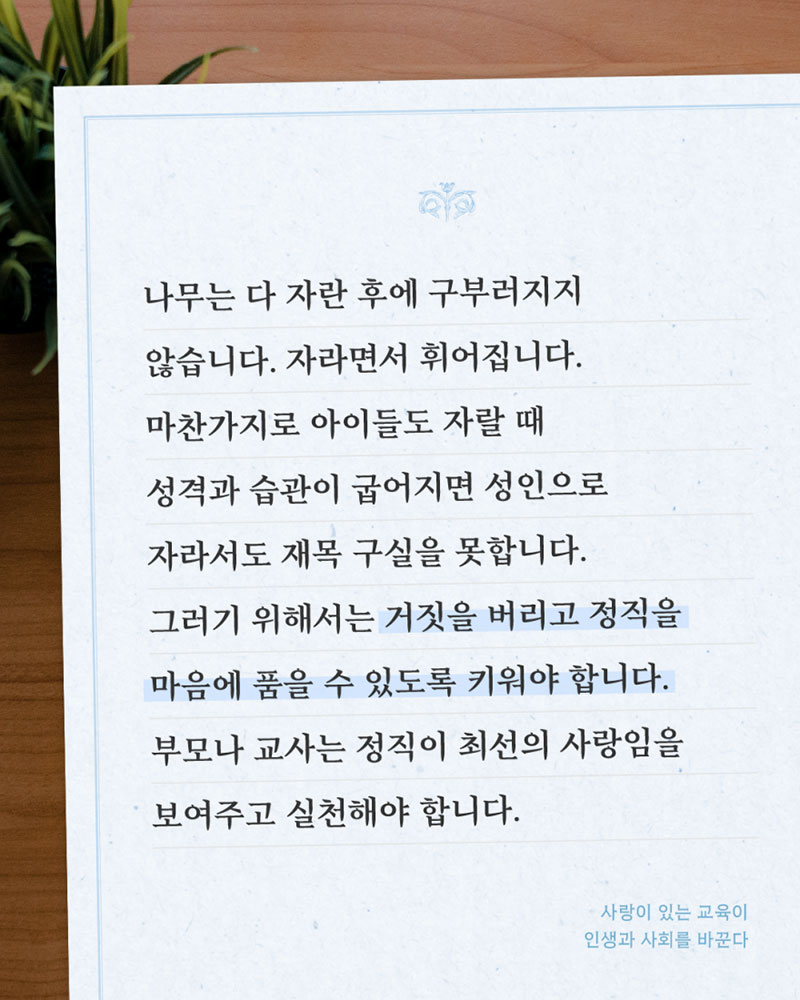 나무는 다 자란 후에 구부러지지
않습니다. 자라면서 휘어집니다.
마찬가지로 아이들도 자랄 때
성격과 습관이 굽어지면 성인으로
자라서도 재목 구실을 못합니다.
그러기 위해서는 거짓을 버리고 정직을
마음에 품을 수 있도록 키워야 합니다.
부모나 교사는 정직이 최선의 사랑임을
보여주고 실천해야 합니다.
사랑이 있는 교육이
인생과 사회를 바꾼다